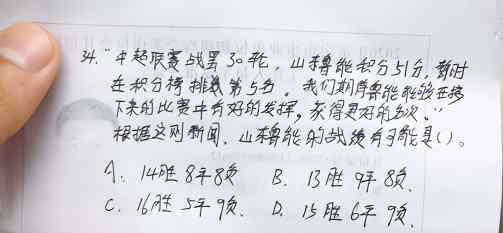 34. "中超联赛战罢30轮，山东鲁能积分51分，暂时
在积分榜排载第5名。我们期待鲁能能够在接
下来的比赛中有好的发挥，获得更好的名次。"
根据这则新闻，山东鲁能的战绩有可能是( )。
A. 14胜8平8负 B. 13胜9平8负.
C. 16胜5平9负. D. 15胜6平9负.